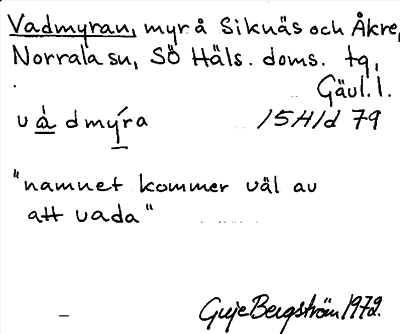 Vadmyran, myr å Siknäs och Åkre,
Norrala sn, SÖ Häls. doms. tg,
Gävl. l.
vàdmýra 15H1d 79
"namnet kommer väl av
att vada"
Guje Bergström 1972.